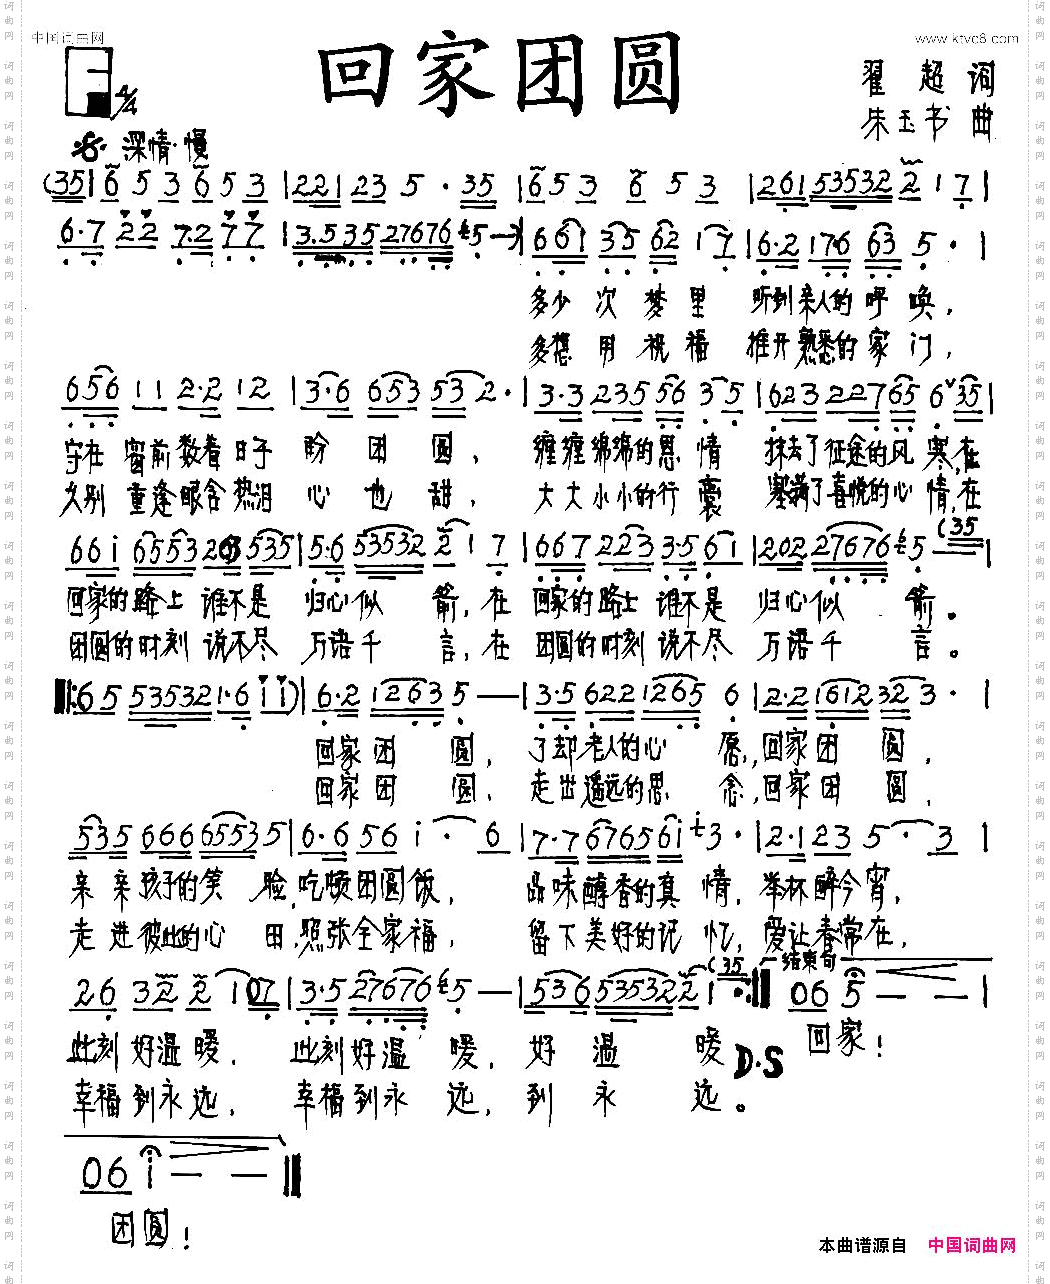 中国词曲网
www.ktvc8.com
回家团圆
4/4
翟超 词
朱玉书 曲
深情·慢
(35| 6 5 3 6 5 3 |221 23 5 · 35 |653 6 5 3 |261 53532 2 1 7 |
6·7 22 7·2 77 |3·535 27676 5 — )|661 35 62 1 7 |6·2 176 63 5 · |
多少次梦里 听到亲人的呼唤,
多想用祝福 推开熟悉的家门,
656 11 2·2 12 |3·6 653 53 2· |3·3 235 56 3 5 |623 2276 5 6 35 |
守在窗前数着日子 盼团圆, 缠缠绵绵的思情 抹去了征途的风寒,在
久别重逢眼含热泪 心也甜, 大大小小的行囊 塞满了喜悦的心情,在
(35
回家的路上谁不是 归心似箭,在 回家的路上谁不是 归心似箭。
团圆的时刻说不尽 万语千言,在 团圆的时刻说不尽 万语千言。
65 53532 1·6 i i )|6·2 1263 5 — |3·5 622 1265 6 |2·2 1612 32 3 · |
回家团圆, 了却老人的心愿,回家团圆,
回家团圆, 走出遥远的思念,回家团圆,
535 666 6553 5 |6·6 56 i · 6 |7·7 6765 6i 3 · |2·1 23 5 · 3 |
亲亲孩子的笑脸,吃顿团圆饭, 品味醇香的真情,举杯醉今宵,
走进彼此的心田,照张全家福, 留下美好的记忆,爱让春常在,
(35 结束句
26 32 2 107 |3·5 27676 5 — |536 53532 2 1 · :‖ 06 5 — — |
此刻好温暖, 此刻好温暖, 好温暖 回家!
D·S
幸福到永远, 幸福到永远, 到永远。
06 i — — ‖
团圆!
本曲谱源自 中国词曲网